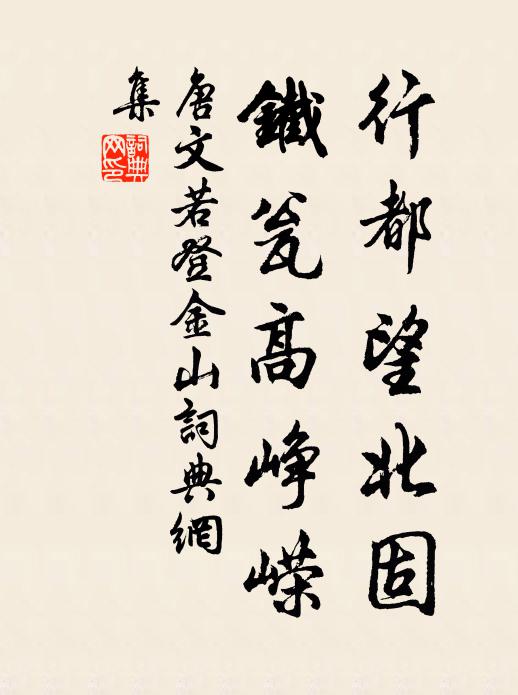 行都望北固
鐵瓮高峥嶸
唐文若登金山詞典網
集
詞典網印